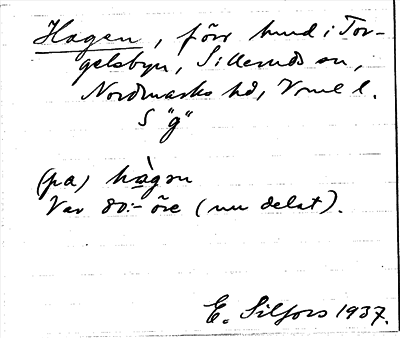 Hagen, förr hmd i Tor-
gelsbyn, Silleruds sn,
Nordmarks hd, Vrml l.
S "g"
(pa) hàgon
Var 80:- öre (nu delat).
E. Silfors 1937.